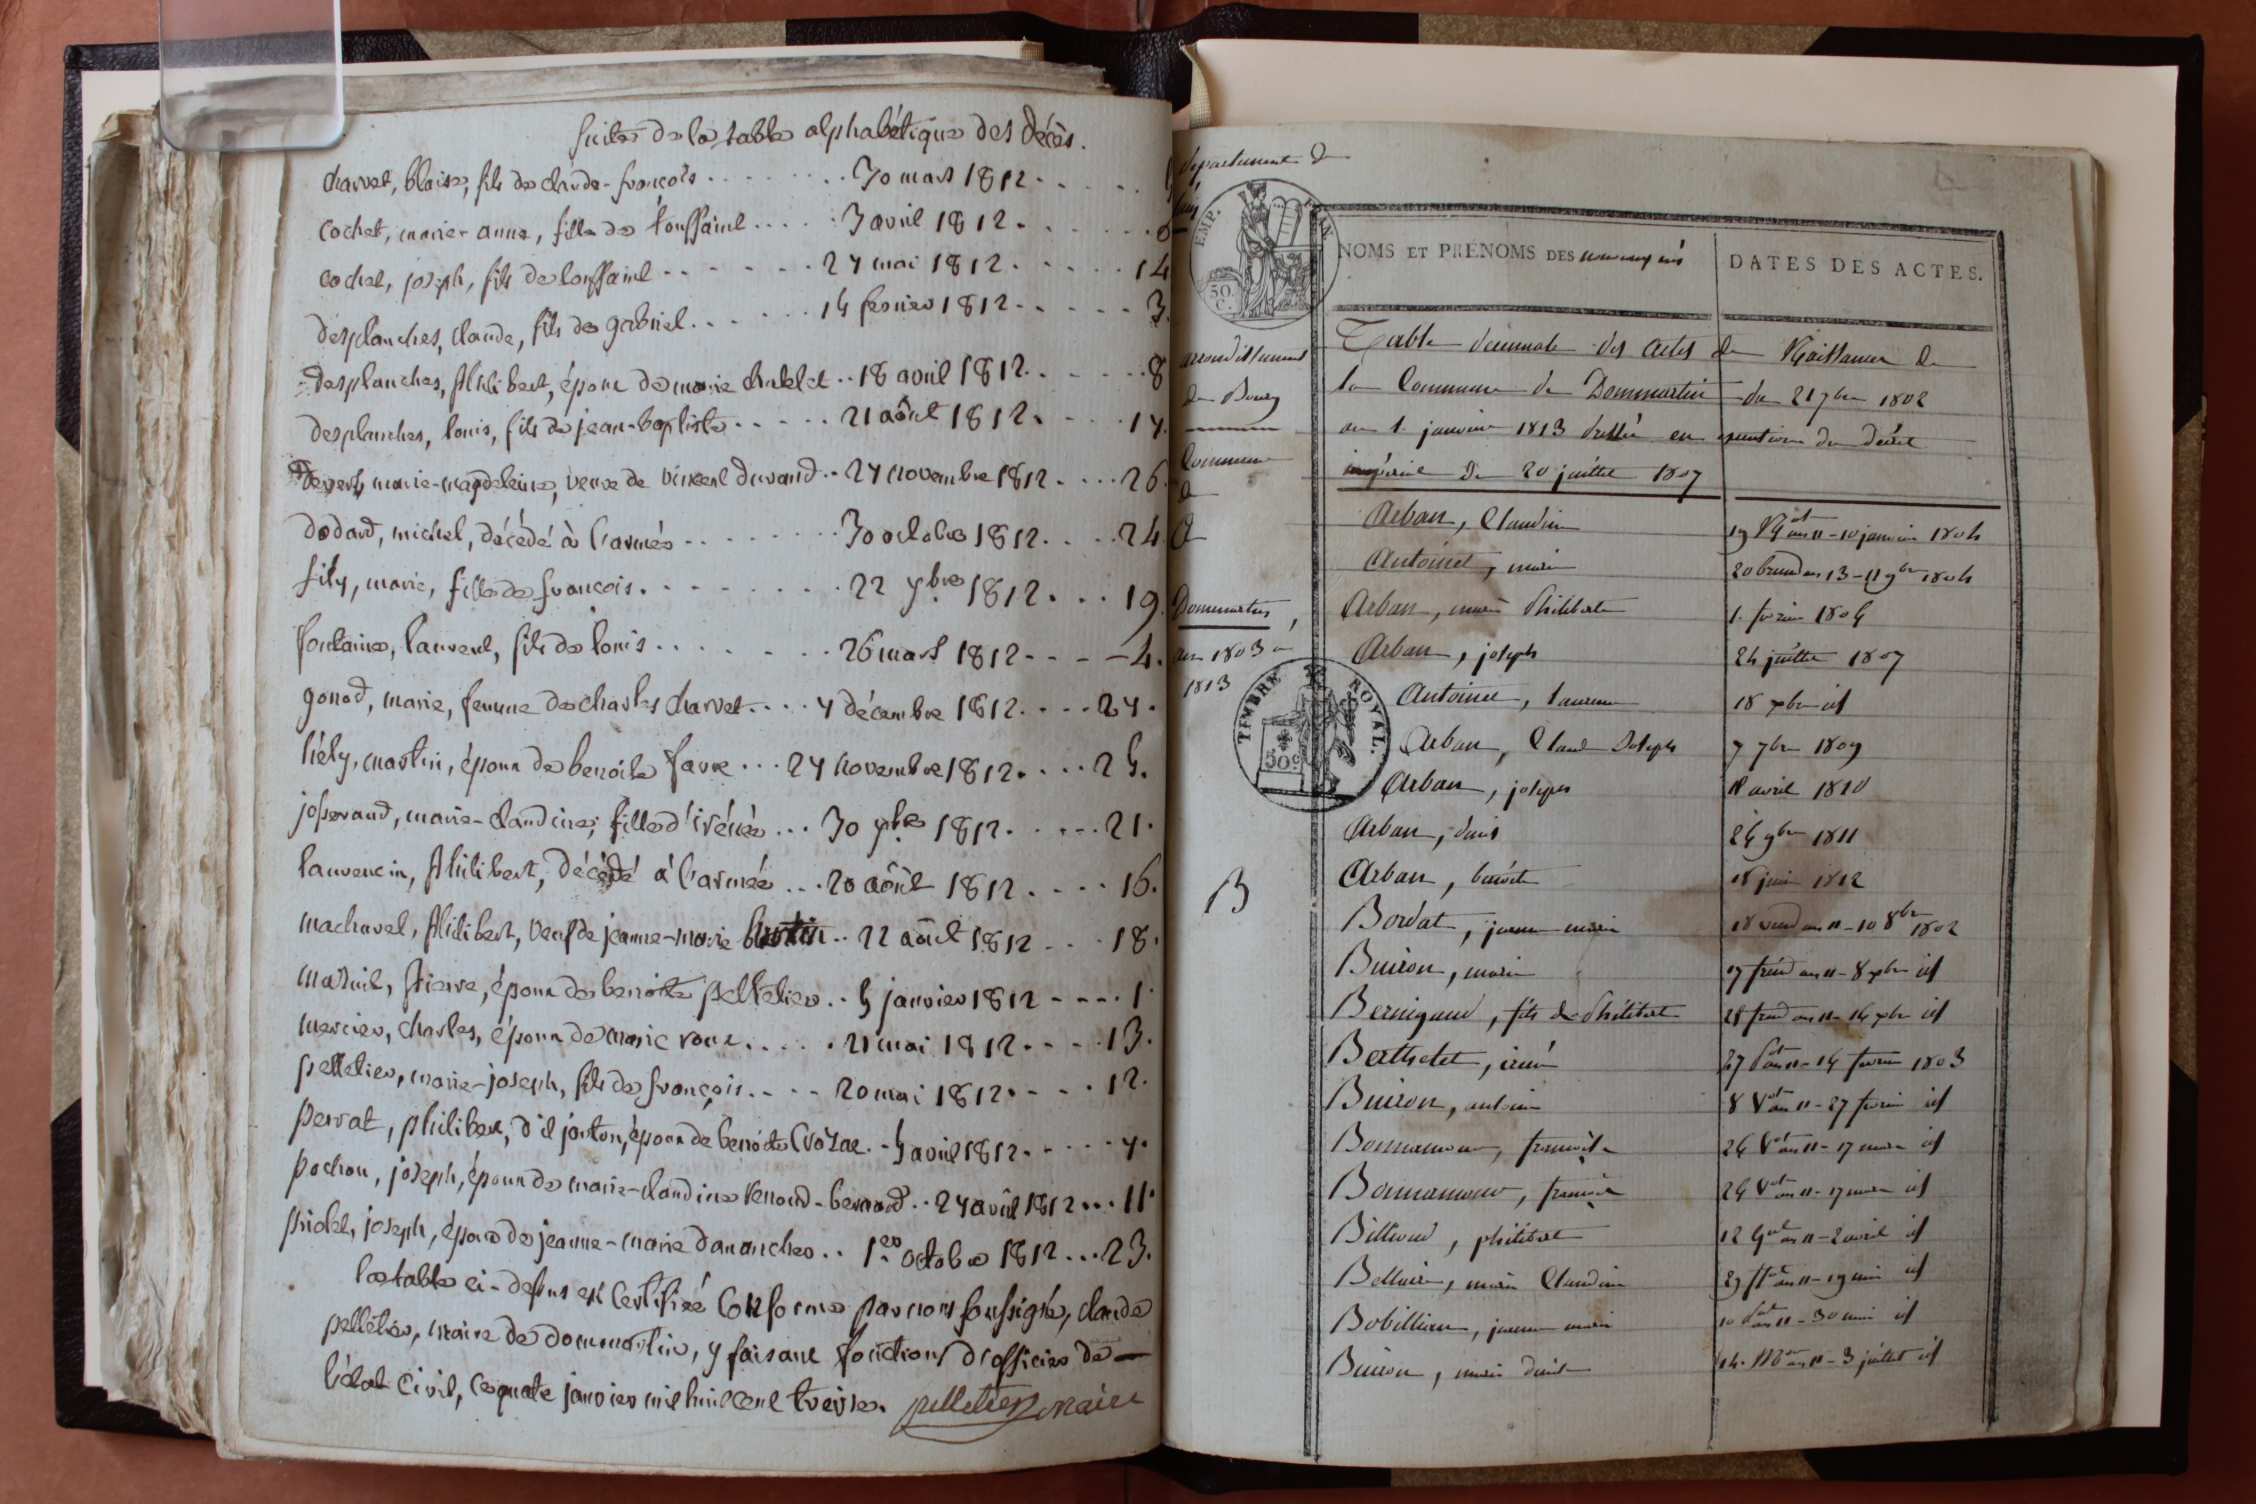 suite de la table alphabétique des décès.
charvet, blaise, fils de claude-françois ........ 30 mars 1812 .....
cochet, marie-anne, fille de toussaint .... 3 avril 1812 .......
cochet, joseph, fils de toussaint ....... 27 mai 1812 ..... 14
desplanches, claude, fils de gabriel ...... 14 fevrier 1812 ..... 3.
desplanches, philibert, époux de marie chatelet .. 18 avril 1812 ...... 8
desplanches, louis, fils de jean-baptiste ..... 21 août 1812 .... 17.
marie-magdeleine, veuve de vincent durand .. 27 novembre 1812 .... 26.
dodard, michel, décédé à l'armée ........ 30 octobre 1812 .... 24.
fity, marie, fille de françois ........ 22 7bre 1812 ... 19.
fontaine, laurent, fils de louis ....... 26 mars 1812 .... 4.
gonod, marie, femme de charles charvet .... 7 décembre 1812 .... 27.
hély, martin, époux de benoite favre ... 27 novembre 1812 .... 25.
josserand, marie-claudine, fille d'irénée ... 30 7bre 1812 ..... 21.
laurencin, philibert, décédé à l'armée ... 20 août 1812 .... 16.
machurel, philibert, veuf de jeanne-marie .. 22 août 1812 ... 18.
pierre, époux de benoite pelletier .. 5 janvier 1812 .... 1.
mercier, charles, époux de marie roux ..... 21 mai 1812 .... 13.
pelletier, marie-joseph, fils de françois .... 20 mai 1812 .... 12.
perrat, philibert, dit époux de benoite .. 5 avril 1812 ..... 7.
pochon, joseph, époux de marie-claudine renoud-bernard .. 27 avril 1812 ... 11.
joseph, époux de jeanne-marie dananches .. 1er octobre 1812 ... 23.
la table ci-dessus est certifiée conforme par nous soussigné, claude
pelletier, maire de dommartin, y faisant fonctions d'officier de
l'état civil, ce quatre janvier mil huit cent treize. pelletier maire
departement de
EMP. FRAN.
50. C.
arrondissement
de Bourg
Commune
de
A
Dommartin,
an 1803 a
1813
TIMBRE ROYAL.
50c
B
NOMS ET PRÉNOMS DES
DATES DES ACTES.
Table décennale des actes de Naissance de
la Commune de Dommartin du 21 7bre 1802
au 1. janvier 1813 dressée en execution du décret
impérial du 20 juillet 1807
Arban, Claudine 19 an 11 - 10 janvier 1804
Antoinet, marie 20 brum an 13 - 11 9bre 1804
Arban, marie Philiberte 1. fevrier 180
Arban, joseph 24 juillet 1807
Antoinet, 18 xbre id
Arban, Claude Joseph 7 7bre 1809
Arban, joseph avril 1810
Arban, denis 24 9bre 1811
Arban, benoite 18 juin 1812
Bordat, jeanne marie 18 vend an 11 - 10 8bre 1802
Buiron, marie 17 frim an 11 - 8 xbre id
Bernigaud, fils de Philibert frim an 11 - xbre id
Berthelet, irené an 11 - 14 fevrier 1803
Buiron, antoine 8 Vot an 11 - 27 fevrier id
Bonnamour, françoise 26 Vot an 11 - 17 mars id
Bonnamour, françois 26 Vot an 11 - 17 mars id
Billoud, philibert 12 Gal an 11 - 2 avril id
marie Claudine 29 flal an 11 - 19 mai id
jeanne marie 10 an 11 - 30 mai id
Buiron, marie 14. an 11 - 3 juillet id